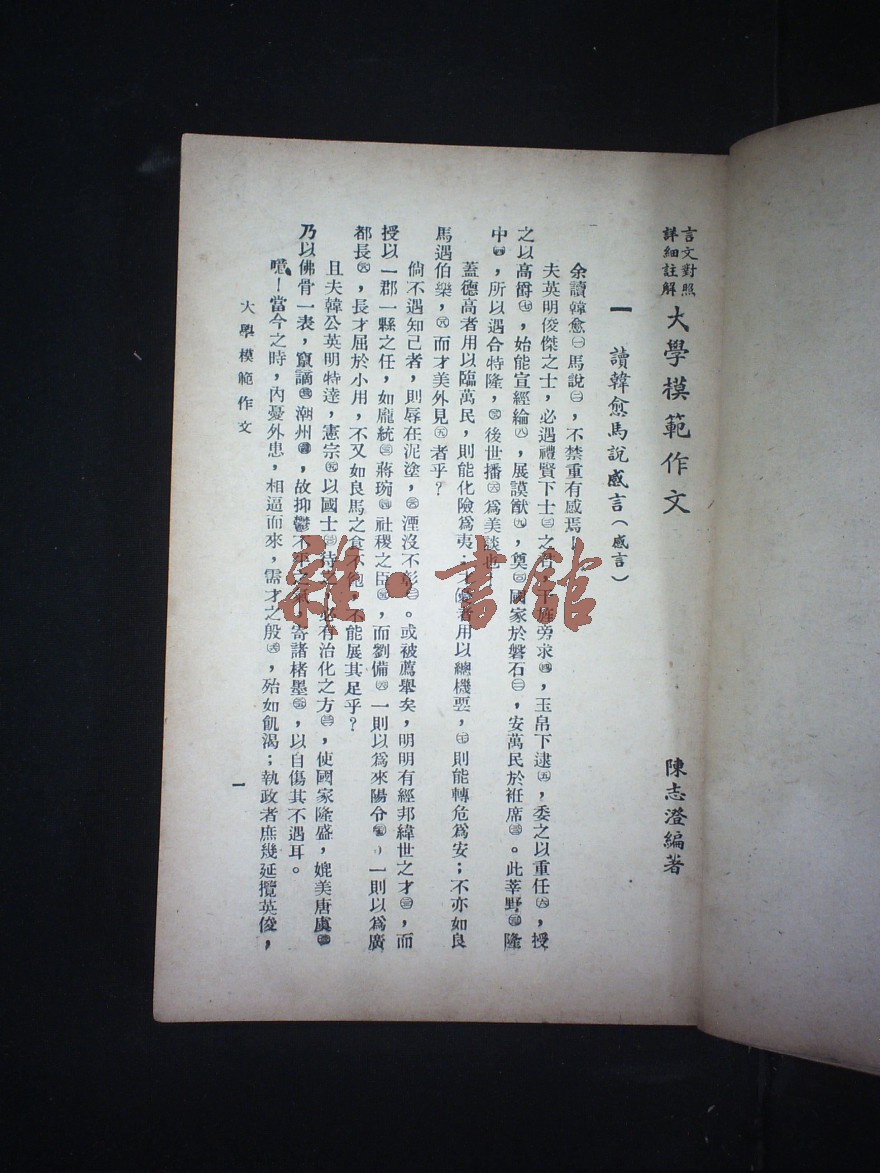 言文對照
詳細註解
大學模範作文
陳志澄編著
一 讀韓愈馬說感言(感言)
余讀韓愈㊀馬說㊁,不禁重有感焉!
夫英明俊傑之士,必遇禮賢下士㊂之旁求㊃,玉帛下逮㊄,委之以重任㊅,授
之以高爵㊆,始能宣經綸㊇,展謨猷㊈,奠㊉國家於磐石,安萬民於袵席。此莘野隆
中,所以遇合特隆,後世播為美談也
蓋德高者用以臨萬民,則能化險為夷;者用以總機要,則能轉危為安;不亦如良
馬遇伯樂,而才美外見者乎?
倘不遇知己者,則辱在泥塗,湮沒不彰。或被薦舉矣,明明有經邦緯世之才,而
授以一郡一縣之任,如龐統蔣琬社稷之臣,而劉備一則以為來陽令,一則以為廣
都長,長才屈於小用,不又如良馬之食不飽,不能展其足乎?
且夫韓公英明特達,憲宗以國士待必有治化之方,使國家隆盛,媲美唐虞
乃以佛骨一表,竄謫潮州,故抑鬱不平之氣,寄諸楮墨,以自傷其不遇耳。
噫!當今之時,內憂外患,相逼而來,需才之殷,殆如飢渴;執政者庶幾延攬英俊,
大學模範作文
一
雜·書館